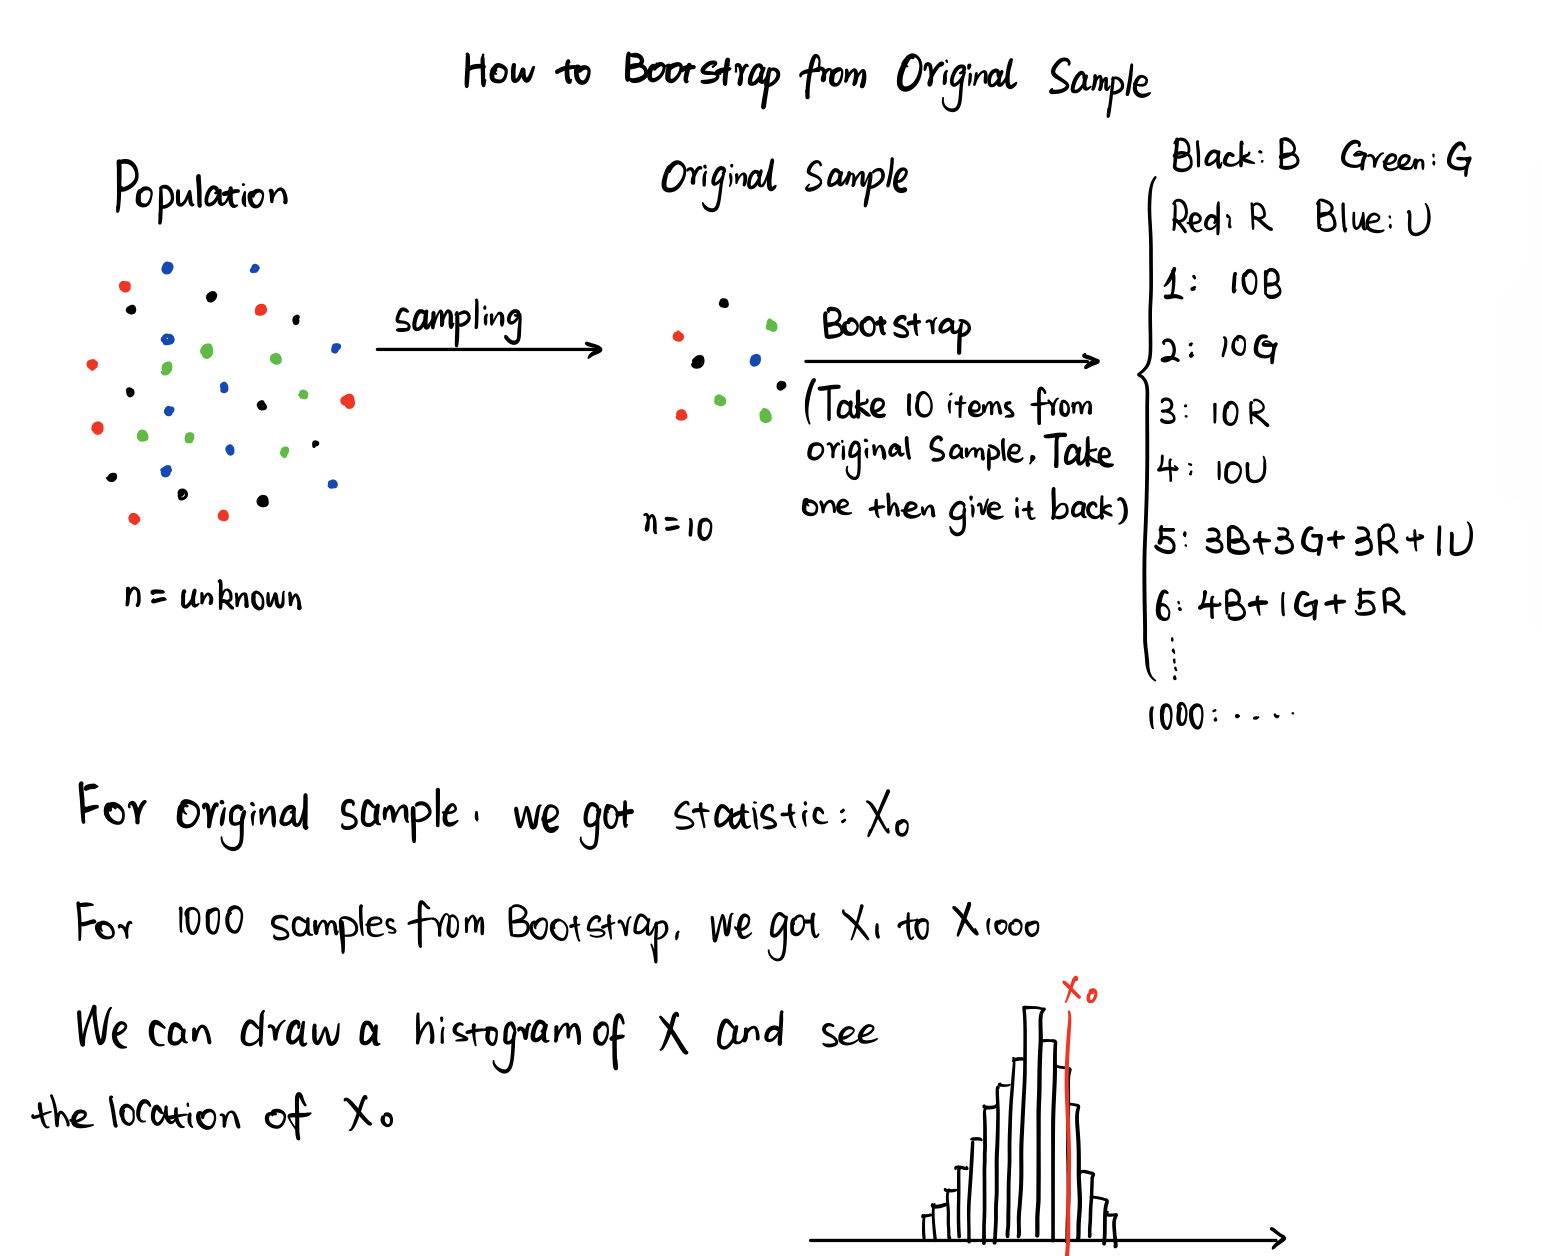 How to Bootstrap from Original Sample
Population
Original Sample
Black: B Green: G
Red: R Blue: U
sampling
Bootstrap
(Take 10 items from
original Sample, Take
one then give it back)
n = unknown
n = 10
1: 10B
2: 10G
3: 10R
4: 10U
5: 3B+3G+3R+1U
6: 4B+1G+5R
1000: ....
For original sample, we got statistic: X₀
For 1000 samples from Bootstrap, we got X₁ to X₁₀₀₀
We can draw a histogram of X and see
the location of X₀
X₀